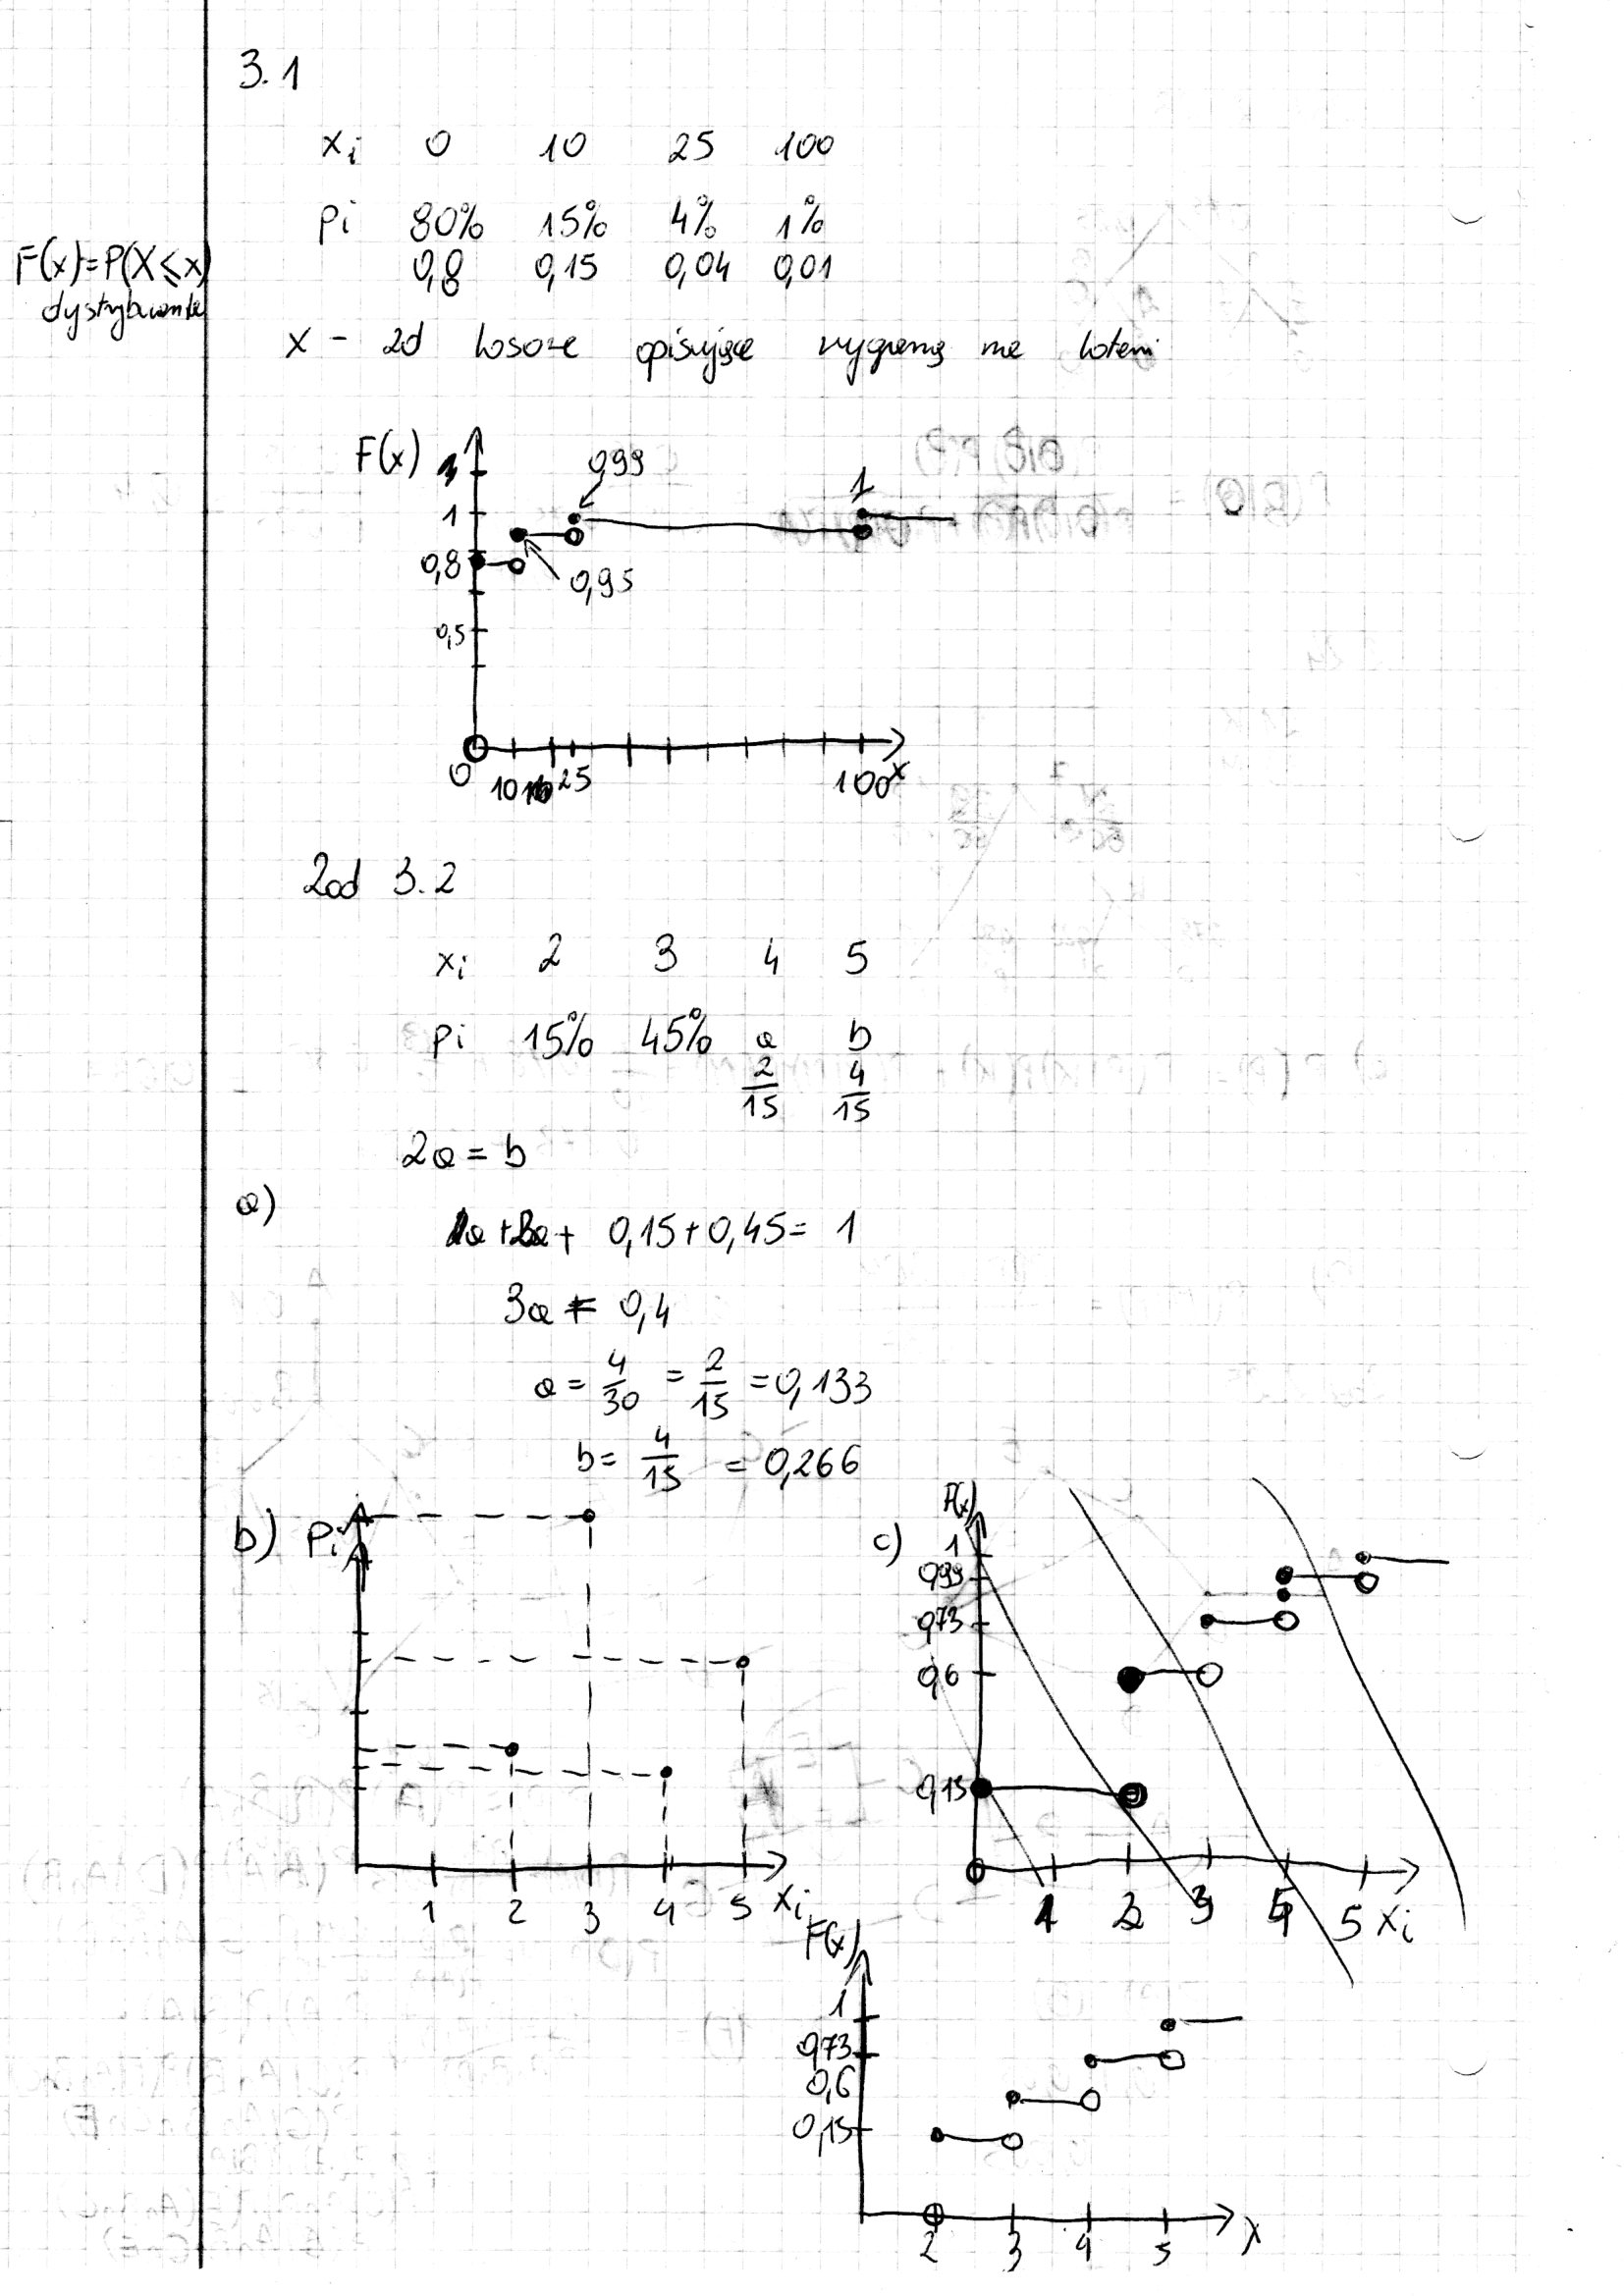 3.1
xi 0 10 25 100
pi 80% 15% 4% 1%
0,8 0,15 0,04 0,01
F(x)=P(X≤x)
dystrybuanta
X - zd losowe opisujące wygraną na loterii
F(x)
1
0,8
0,5
0,99
0,95
1
0 10 25 100 x
Zad 3.2
xi 2 3 4 5
pi 15% 45% a b
2/15 4/15
2a = b
a)
1a + 2a + 0,15 + 0,45 = 1
3a = 0,4
a = 4/30 = 2/15 = 0,133
b = 4/15 = 0,266
b) Pi
1 2 3 4 5 xi
c) F(x)
1
0,99
0,73
0,6
0,15
1 2 3 4 5 xi
F(x)
1
0,73
0,6
0,15
2 3 4 5 x